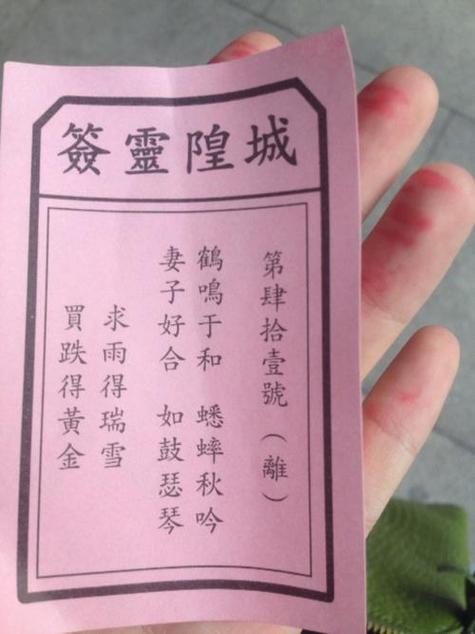 城隍靈簽
第肆拾壹號（離）
鶴鳴于和　蟋蟀秋吟
妻子好合　如鼓瑟琴
求雨得瑞雪
買跌得黃金